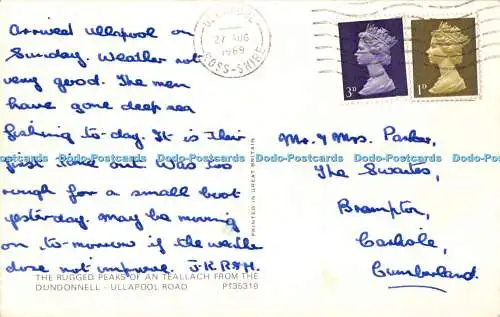 Arrived Ullapool on
Sunday. Weather not
very good. The men
have gone deep sea
fishing to-day. It is their
first time out. Was too
rough for a small boat
yesterday. may be moving
on to-morrow if the weathe
dose not improve. J.K.R&H.
THE RUGGED PEAKS OF AN TEALLACH FROM THE
DUNDONNELL - ULLAPOOL ROAD PT35319
PRINTED IN GREAT BRITAIN
ULLAPOOL
27 AUG
1969
ROSS-SHIRE
3D
1D
Mr. & Mrs. Parker,
The
Brampton,
Carlisle,
Cumberland.
Dodo-Postcards Dodo-Postcards Dodo-Postcards Dodo-Postcards Dodo-Postcards